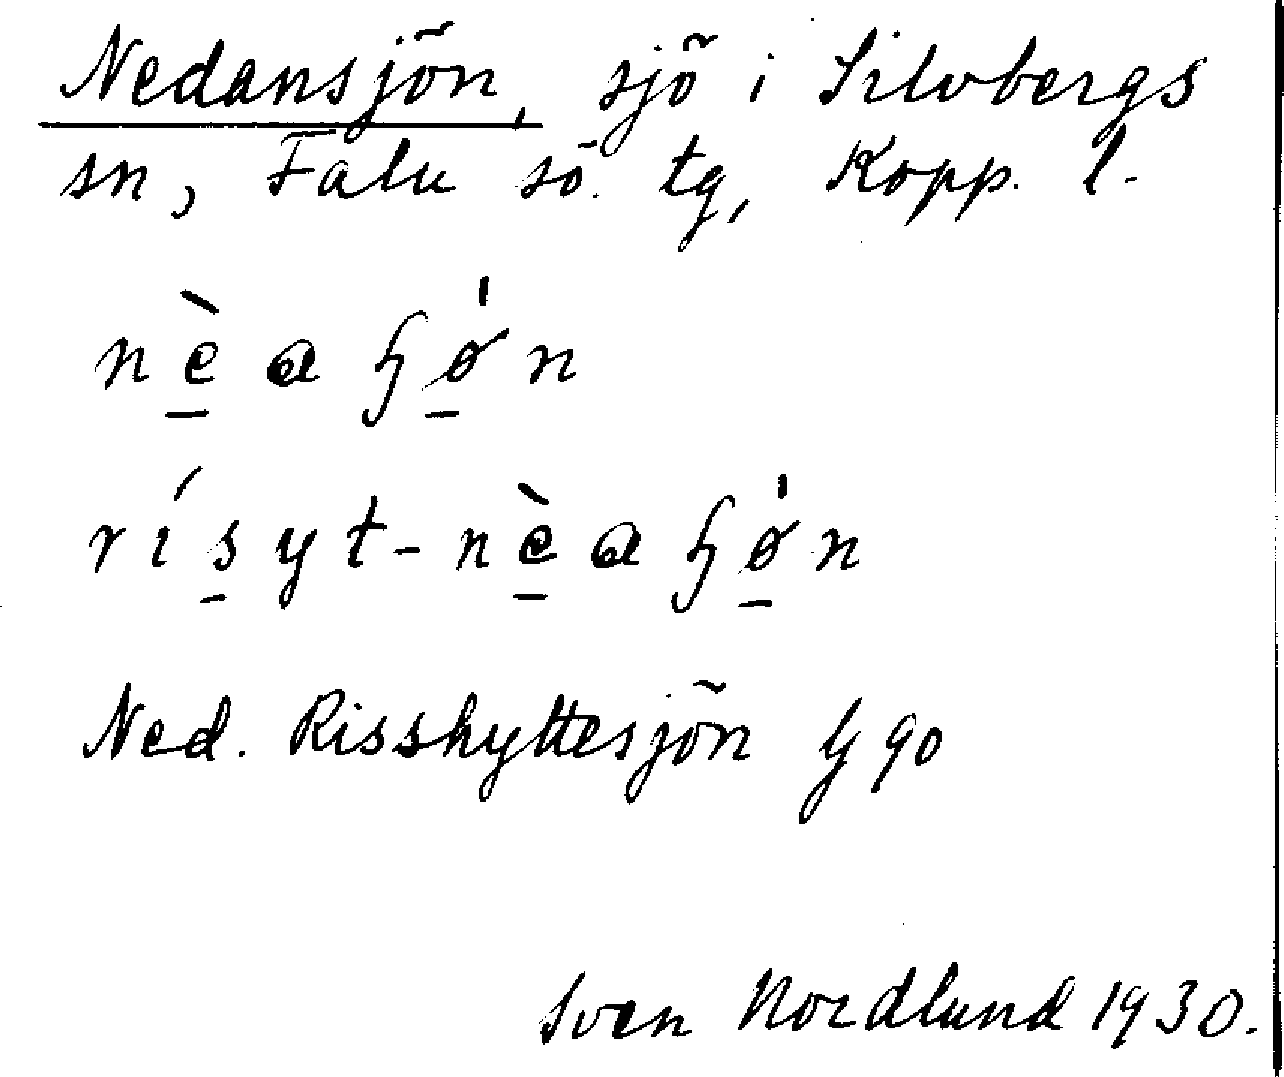 Nedansjön, sjö i Silvbergs
sn, Falu sö. tg, Kopp. l.
nèaɧø̍n
rísyt-nèaɧø̍n
Ned. Risshyttesjön G 90
Sven Nordlund 1930.